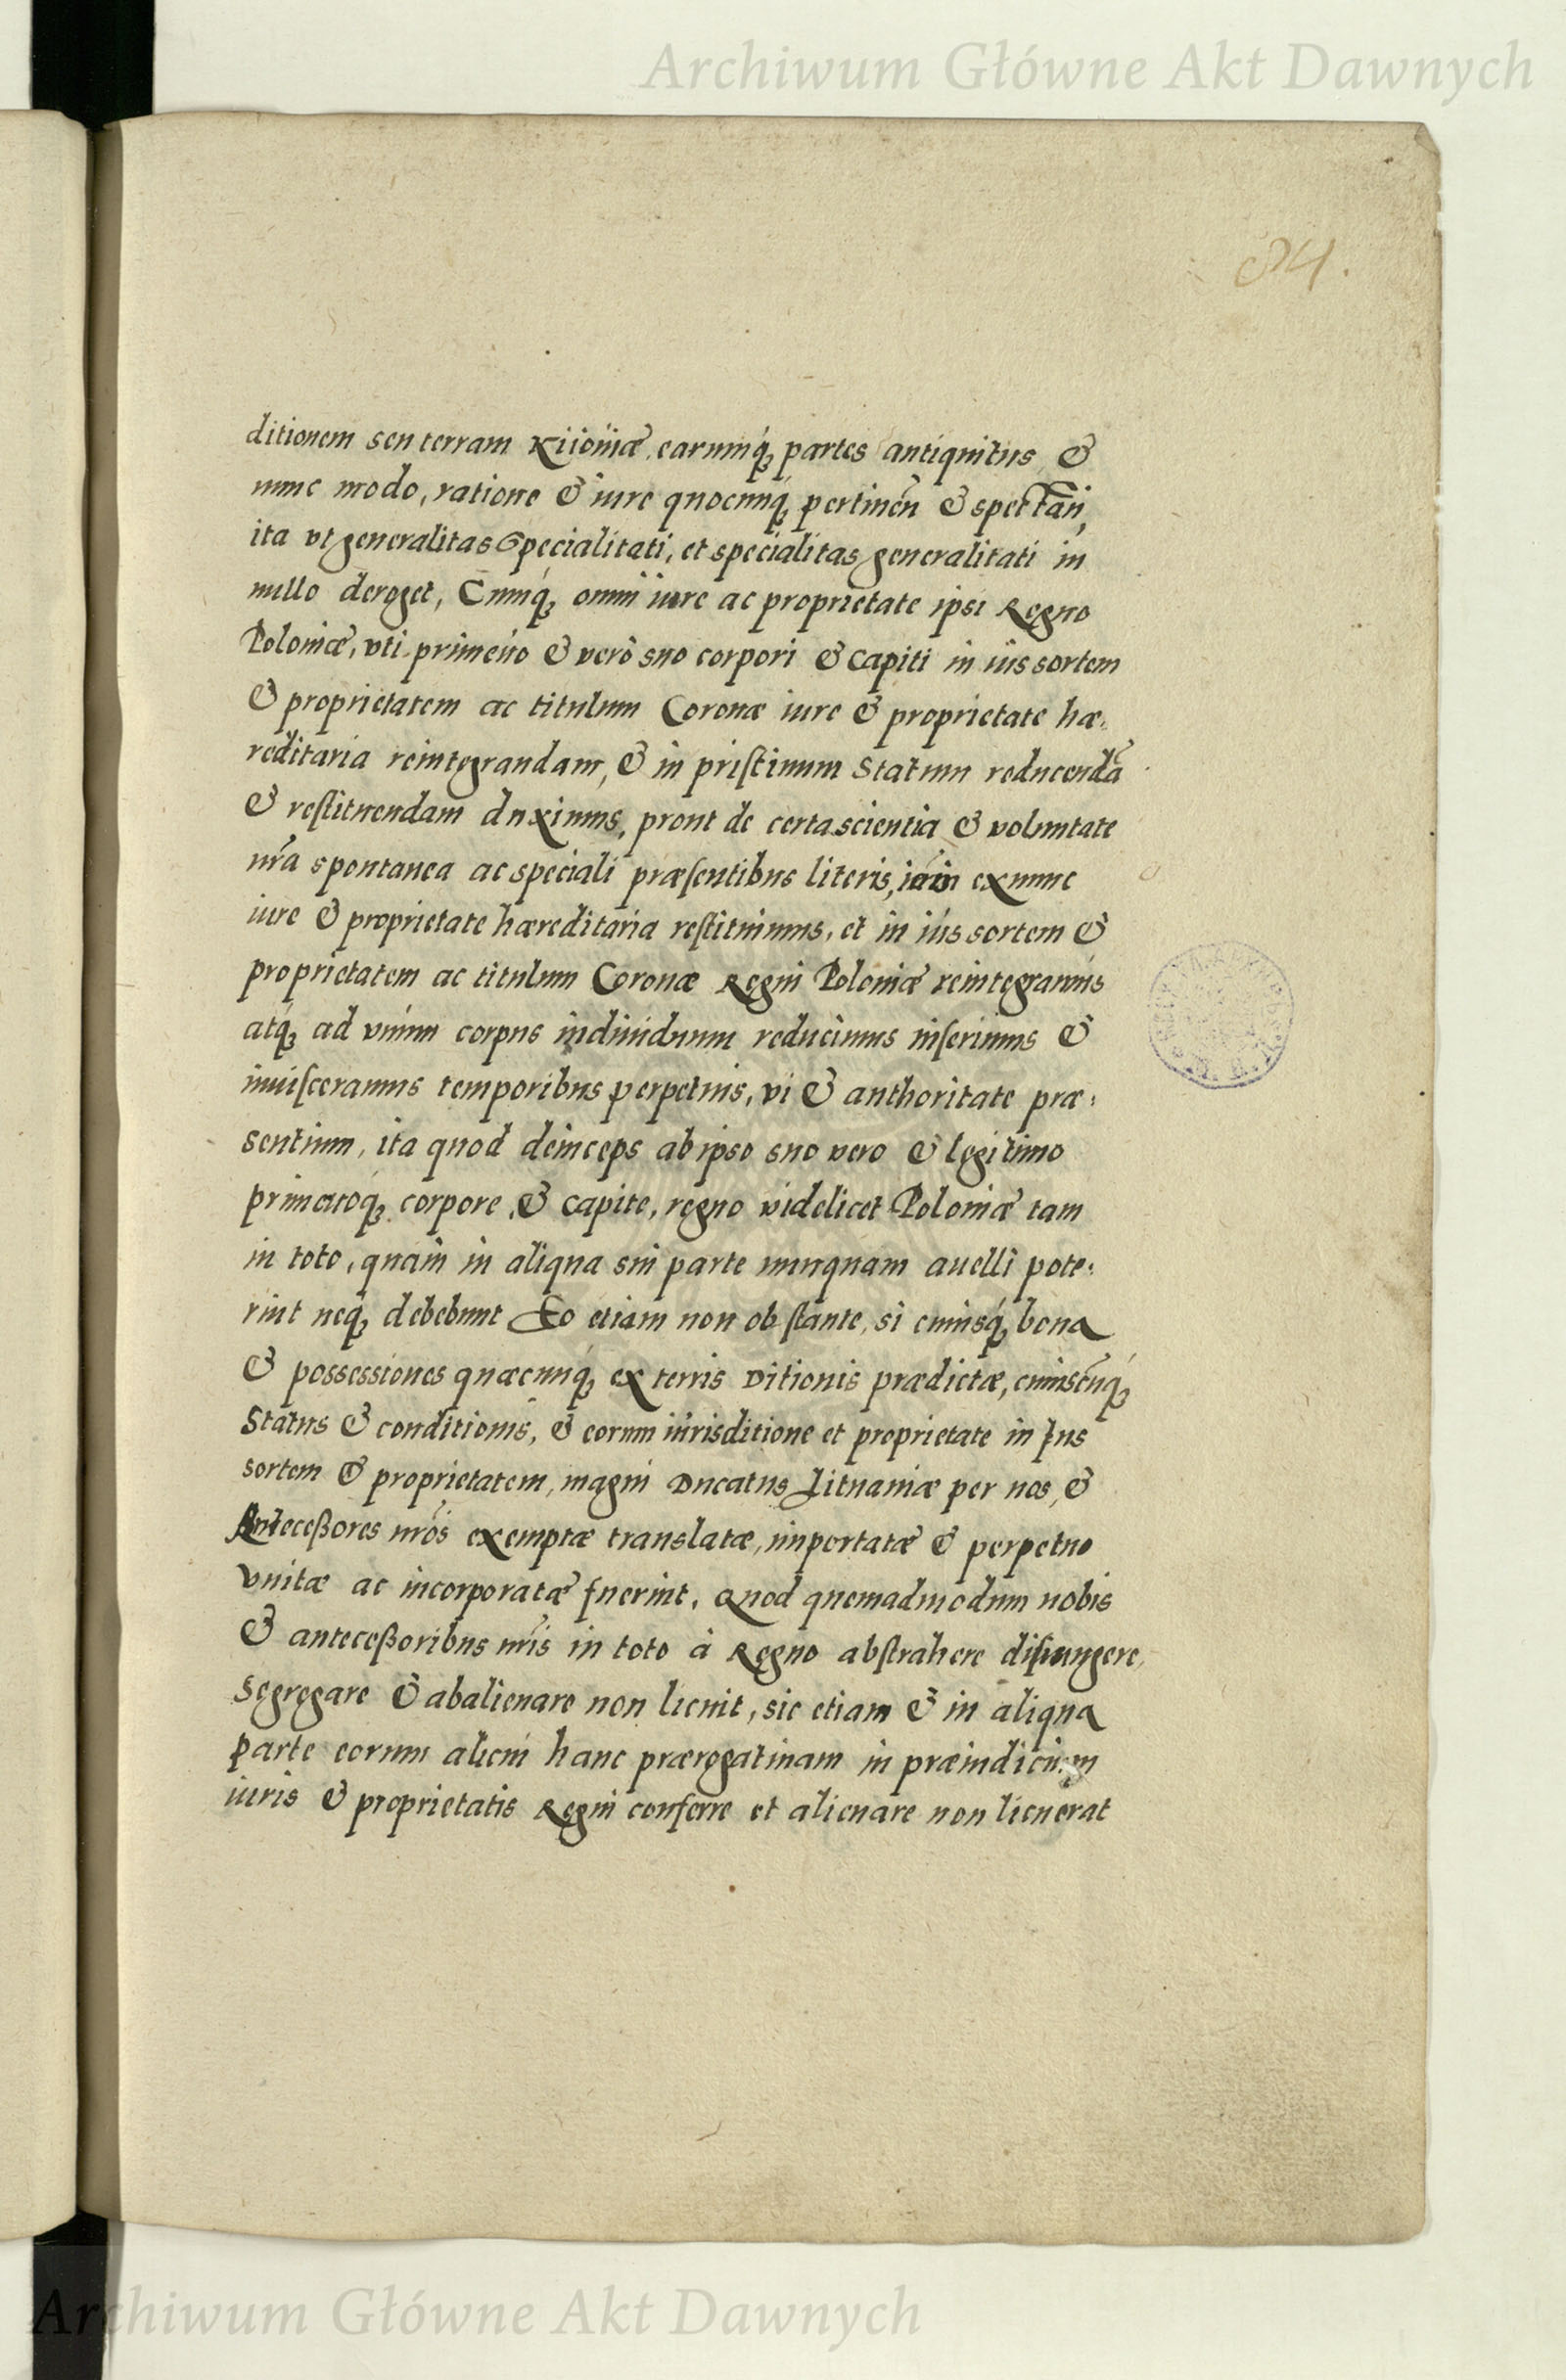 Archiwum Główne Akt Dawnych
ditionem seu terram Kiioviæ, earumq́; partes antiquitus &
nunc modo, ratione & iure quocunq́; pertineñ & spectañ,
ita vt generalitas Specialitati, et specialitas generalitati in
nullo deroget, Eamq́; omni iure ac proprietate ipsi Regno
Poloniæ, vti primeuo & verò suo corpori & capiti in ius sortem
& proprietatem ac titulum Coronæ iure & proprietate hæ-
reditaria reintegrandam, & in pristinum Statum reducendã
& restituendam duximus, prout de certa scientia & voluntate
nr̃a spontanea ac speciali præsentibus literis, iam exnunc
iure & proprietate hæreditaria restituimus, et in ius sortem &
proprietatem ac titulum Coronæ Regni Poloniæ reintegramus
atq́; ad vnum corpus indiuiduum reducimus inserimus &
inuisceramus temporibus perpetuis, vi & authoritate præ-
sentium, ita quod deinceps ab ipso suo vero & legitimo
primeuoq́; corpore, & capite, regno videlicet Poloniæ tam
in toto, quam in aliqua sui parte nunquam auelli pote-
rint neq́; debebunt Eo etiam non obstante, si cuiusq́; bona
& possessiones quæcunq́; ex terris Ditionis prædictæ, cuiuscũq́;
Status & conditionis, & eorum iurisditione et proprietate in Jus
sortem & proprietatem, magni Ducatus Lituaniæ per nos, &
Antecessores nr̃os exemptæ translatæ, importatæ & perpetuo
vnitæ ac incorporatæ fuerint. Quod quemadmodum nobis
& antecessoribus nr̃is in toto à Regno abstrahere disiungere,
segregare & abalienare non licuit, sic etiam & in aliqua
parte eorum alicui hanc prærogatiuam in præiudicium
iuris & proprietatis Regni conferre et alienare non licuerat
Archiwum Główne Akt Dawnych